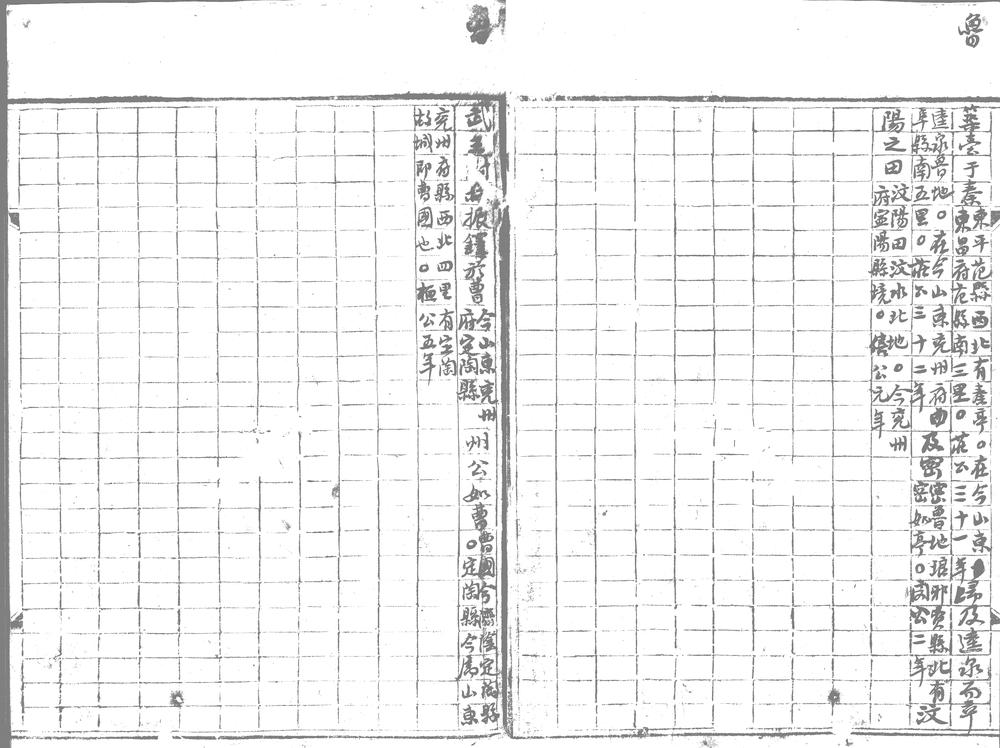 魯
築臺于秦
東平范縣西北有秦亭。在今山東
東昌府范縣南三里。莊公三十一年
歸及逵泉而卒
逵泉魯地。在今山東兗州府曲
阜縣南五里。莊公三十二年
及密
密魯地琅邪費縣北有
密如亭。閔公二年
汶
陽之田
汶陽田汶水北地。今兗州
府寧陽縣境。僖公元年
曹
武王封 振鐸於曹
今山東兗州
府定陶縣
州公如曹
曹國今濟陰定陶縣
。定陶縣今屬山東
兗州府縣西北四里有定陶
故城即曹國也。桓公五年